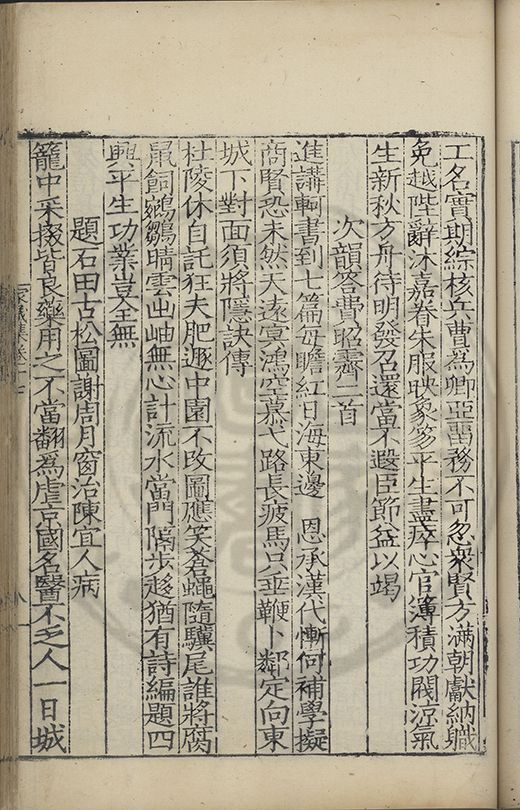 工名實期綜核兵曹為卿亞畱務不可忽衆賢方滿朝獻納職
免越陛辭沐嘉眷朱服映象笏平生盡瘁心官簿積功閥涼氣
生新秋方舟待明發召還當不遐臣節益以竭
次韻答費昭霽二首
進講軻書到七篇每瞻紅日海東邊 恩承漢代慚何補學擬
商賢恐未然天遠冥鴻空慕弋路長疲馬只垂鞭卜鄰定向東
城下對面須將隱訣傳
杜陵休自託狂夫肥遯中園不改圖應笑蒼蠅隨驥尾誰將腐
鼠飼鵷鶵晴雲出岫無心計流水當門隔步趍猶有詩編題四
興平生功業豈全無
題石田古松圖謝周月窗治陳宜人病
籠中采掇皆良藥用之不當翻為虐京國名醫不乏人一日城
家藏集卷十七
八